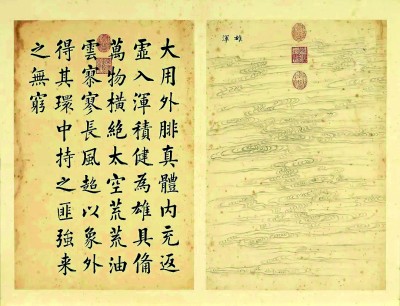 雄渾
大用外腓真體内充返
虛入渾積健為雄具備
萬物橫絕太空荒荒油
雲寥寥長風超以象外
得其環中持之匪強來
之無窮